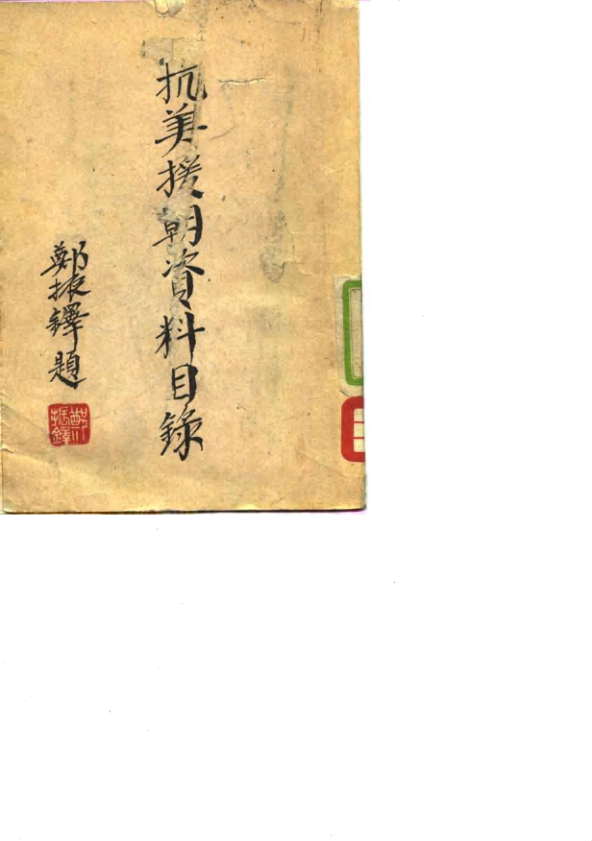 抗美援朝資料目錄
鄭振鐸題
鄭振鐸